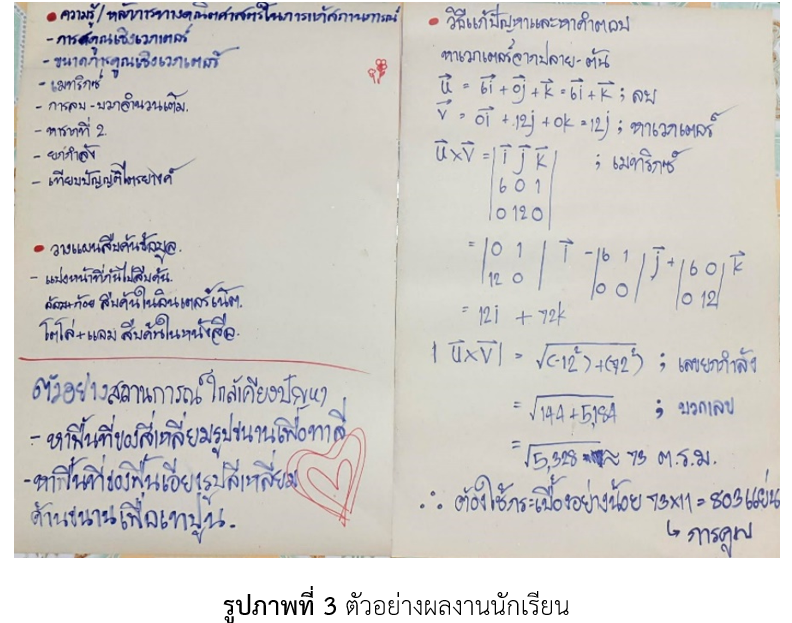 • ความรู้ / หลักการทางคณิตศาสตร์ในการแก้สถานการณ์
- การคูณเชิงเวกเตอร์
- ขนาดการคูณเชิงเวกเตอร์
- เมทริกซ์
- การลบ - บวกจำนวนเต็ม.
- รากที่ 2.
- ยกกำลัง
- เทียบบัญญัติไตรยางค์
• วางแผนสืบค้นข้อมูล.
- แบ่งหน้าที่กันไปสืบค้น.
สืบค้นในอินเตอร์เน็ต.
โตโต่+แลม สืบค้นในหนังสือ.
ตัวอย่างสถานการณ์ ใกล้เคียงปัญหา
- หาพื้นที่ของสี่เหลี่ยมรูปขนานเพื่อทาสี
- หาพื้นที่ของพื้นเอียงรูปสี่เหลี่ยม
ด้านขนานเพื่อเทปูน.
• วิธีแก้ปัญหาและหาคำตอบ
หาเวกเตอร์จากปลาย - ต้น
u⃗ = 6i⃗ + 0j⃗ + k⃗ = 6i⃗ + k⃗ ; ลบ
v⃗ = 0i⃗ + 12j + 0k = 12j ; หาเวกเตอร์
u⃗ × v⃗ = | i⃗ j⃗ k⃗ | ; เมทริกซ์
6 0 1
0 12 0
= | 0 1 | i⃗ - | 6 1 | j⃗ + | 6 0 | k⃗
12 0 0 0 0 12
= 12i + 72k
| u⃗ × v⃗ | = √(-12²) + (72²) ; เลขยกกำลัง
= √144 + 5,184 ; บวกเลข
= √5,328 ≈ 73 ต.ร.ม.
∴ ต้องใช้กระเบื้องอย่างน้อย 73 × 11 = 803 แผ่น
↳ การคูณ
รูปภาพที่ 3 ตัวอย่างผลงานนักเรียน